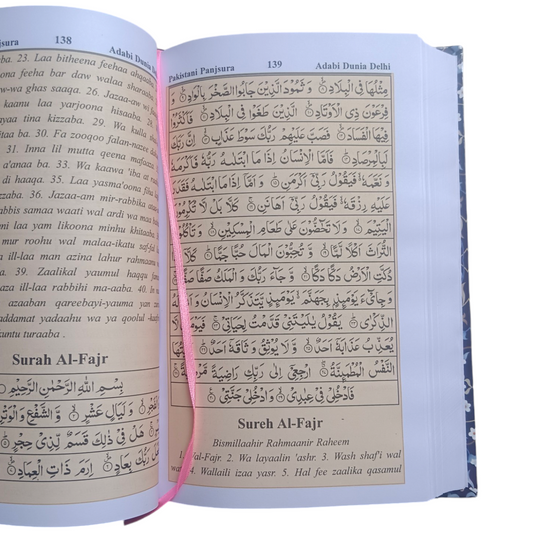 sura 138 Adabi Dunia
ba. 23. Laa bitheena feehaa ahqaaba.
oona feeha bar daw walaa sharaaba.
w-wa ghas saaqa. 26. Jazaa-aw wi
kaanu laa yarjoona hisaaba.
ayaa tina kizzaba. 29. Wa kulla
itaa ba. 30. Fa zooqoo falan-nazee
31. Inna lil mutta qeena mafaaza.
a'anaa ba. 33. Wa kaawa 'iba at
di haaqa. 35. Laa yasma'oona fiha
izzaba. 36. Jazaa-am mir-rabbika
rabbis samaa waati wal ardi wa maa
ni laa yam likoona minhu khitaaba.
mur roohu wal malaa-ikatu saf-fal
a ill-laa man azina lahur rahmaanu
ba. 39. Zaalikal yaumul haqqu
aza ill-laa rabbihi ma-aaba. 40. In
azaaban qareebayi-yauma yan
addamat yadaahu wa ya qoolul -kaafi
kuntu turaaba .
Surah Al-Fajr
بِسْمِ اللّٰهِ الرَّحْمٰنِ الرَّحِيْمِ
وَ لَيَالٍ عَشْرٍ وَّ الشَّفْعِ وَ الْوَتْرِ
هَلْ فِيْ ذٰلِكَ قَسَمٌ لِّذِيْ حِجْرٍ
رَبُّكَ بِعَادٍ اِرَمَ ذَاتِ الْعِمَادِ
Pakistani Panjsura 139 Adabi Dunia Delhi
مِثْلُهَا فِي الْبِلَادِ وَ ثَمُوْدَ الَّذِيْنَ جَابُوا الصَّخْرَ بِالْوَادِ وَ
فِرْعَوْنَ ذِي الْاَوْتَادِ الَّذِيْنَ طَغَوْا فِي الْبِلَادِ فَاَكْثَرُوْا
فِيْهَا الْفَسَادَ فَصَبَّ عَلَيْهِمْ رَبُّكَ سَوْطَ عَذَابٍ اِنَّ رَبَّكَ
لَبِالْمِرْصَادِ فَاَمَّا الْاِنْسَانُ اِذَا مَا ابْتَلٰىهُ رَبُّهٗ فَاَكْرَمَهٗ
وَ نَعَّمَهٗ فَيَقُوْلُ رَبِّيْ اَكْرَمَنِ وَ اَمَّا اِذَا مَا ابْتَلٰىهُ فَقَدَرَ
عَلَيْهِ رِزْقَهٗ فَيَقُوْلُ رَبِّيْ اَهَانَنِ كَلَّا بَلْ لَّا تُكْرِمُوْنَ
الْيَتِيْمَ وَ لَا تَحٰٓضُّوْنَ عَلٰى طَعَامِ الْمِسْكِيْنِ وَ تَاْكُلُوْنَ
التُّرَاثَ اَكْلًا لَّمًّا وَّ تُحِبُّوْنَ الْمَالَ حُبًّا جَمًّا كَلَّا
دُكَّتِ الْاَرْضُ دَكًّا دَكًّا وَّ جَآءَ رَبُّكَ وَ الْمَلَكُ صَفًّا صَفًّا
وَ جِایْٓءَ يَوْمَىِٕذٍۭ بِجَهَنَّمَ يَوْمَىِٕذٍ يَّتَذَكَّرُ الْاِنْسَانُ وَ اَنّٰى
الذِّكْرٰى يَقُوْلُ يٰلَيْتَنِيْ قَدَّمْتُ لِحَيَاتِيْ فَيَوْمَىِٕذٍ لَّا
يُعَذِّبُ عَذَابَهٗٓ اَحَدٌ وَّ لَا يُوْثِقُ وَ ثَاقَهٗٓ اَحَدٌ
النَّفْسُ الْمُطْمَىِٕنَّةُ ارْجِعِيْٓ اِلٰى رَبِّكِ رَاضِيَةً
فَادْخُلِيْ فِيْ عِبٰدِيْ وَ ادْخُلِيْ جَنَّتِيْ
Sureh Al-Fajr
Bismillaahir Rahmaanir Raheem
1. Wal-Fajr. 2. Wa layaalin 'ashr. 3. Wash shaf'i wal
4. Wallaili izaa yasr. 5. Hal fee zaalika qasamul